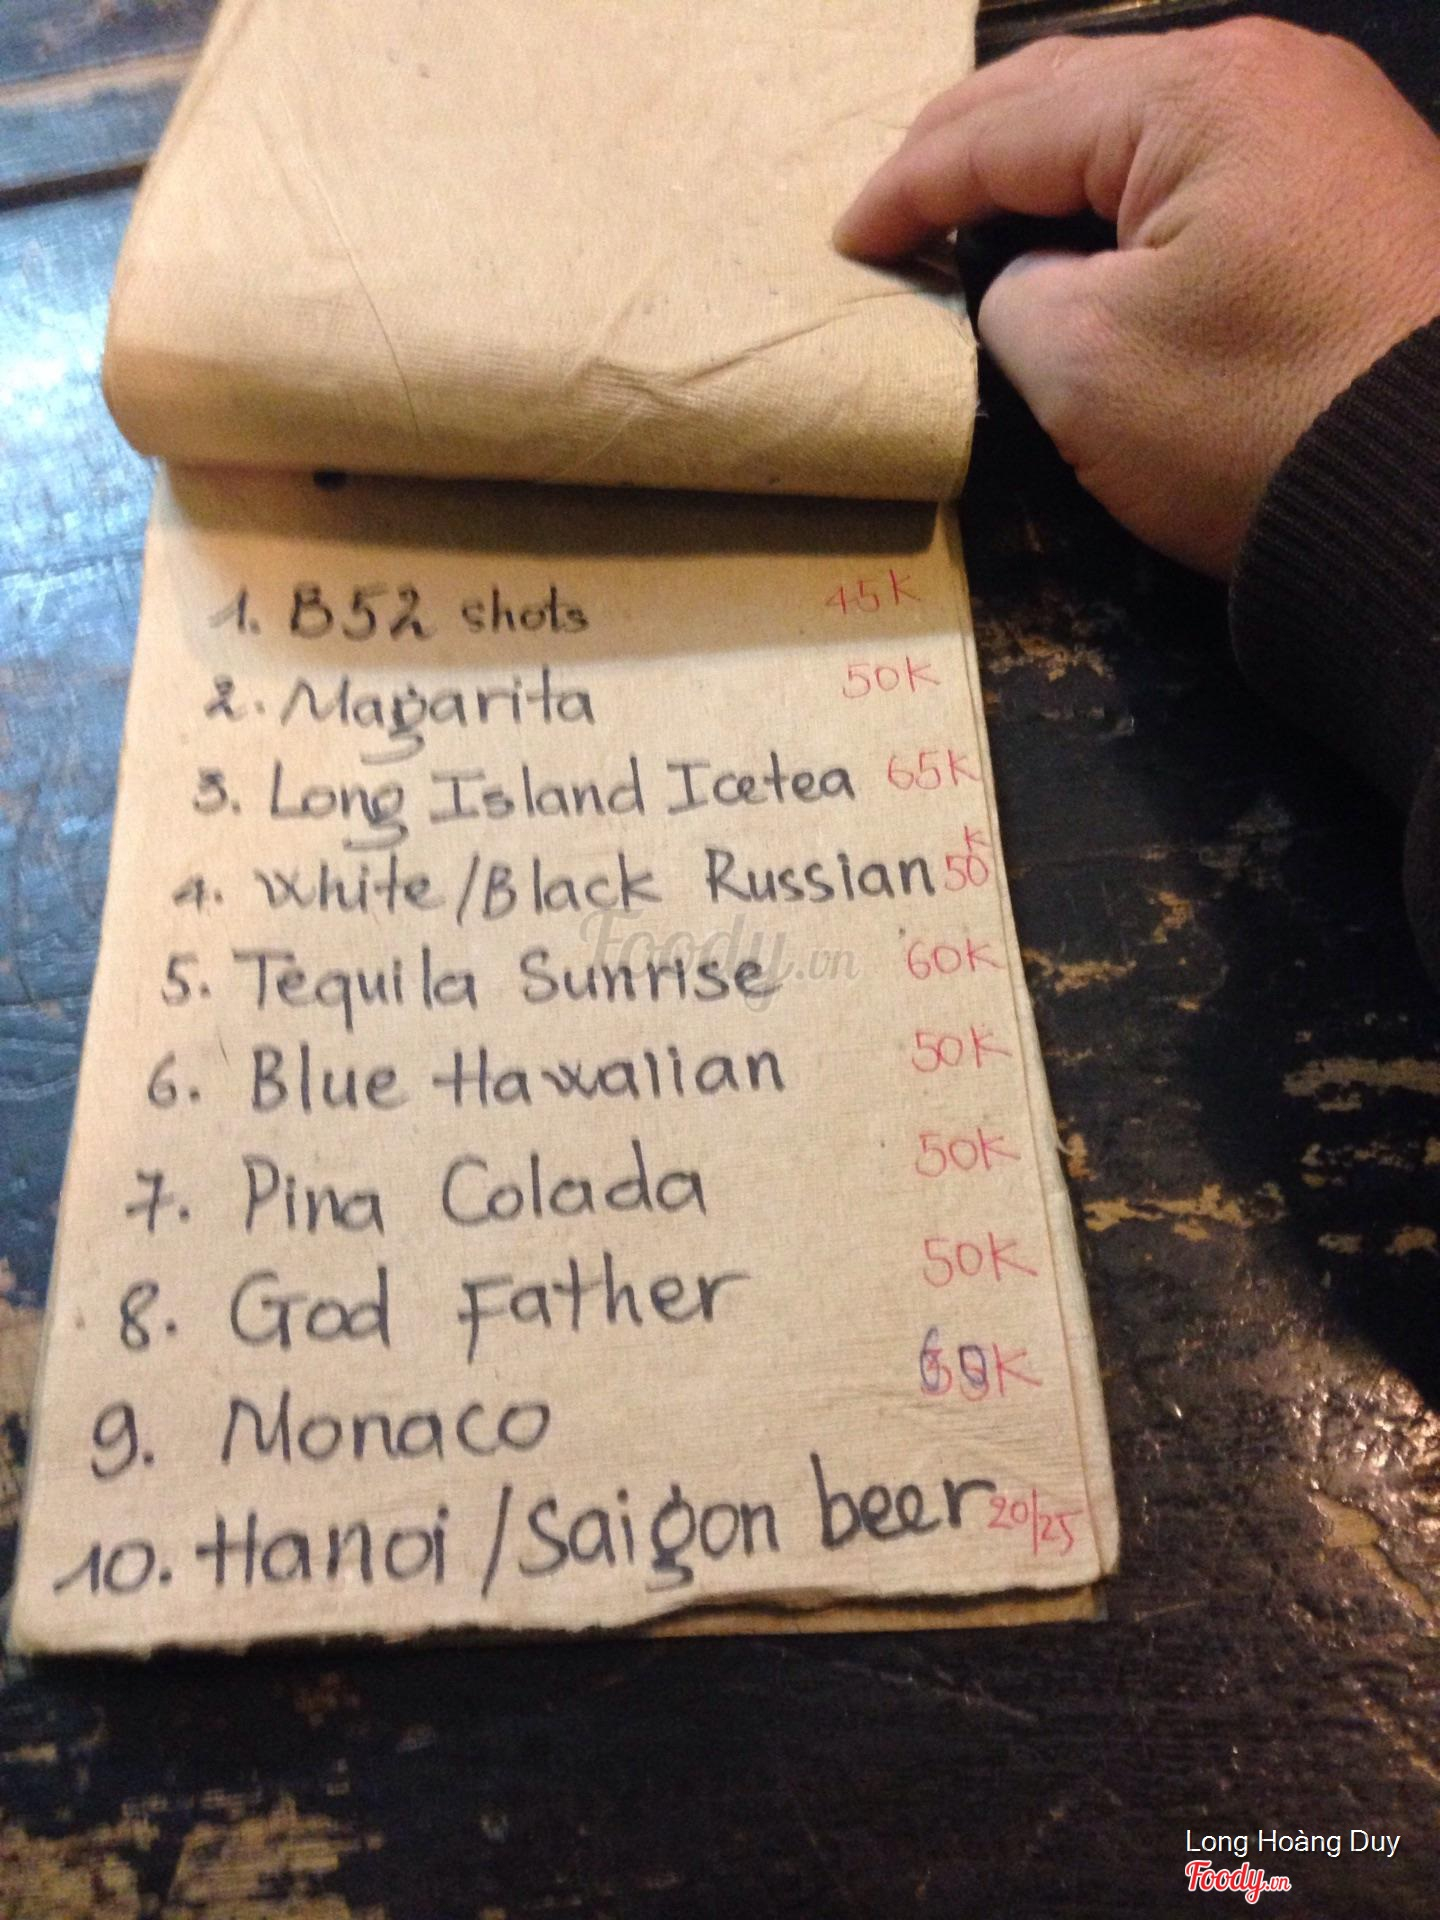 1. B52 shots 45K
2. Magarita 50K
3. Long Island Icetea 65K
4. White/Black Russian 50K
5. Tequila Sunrise 60K
6. Blue Hawaiian 50K
7. Pina Colada 50K
8. God Father 50K
9. Monaco 60K
10. Hanoi/Saigon beer 20/25
Foody.vn
Long Hoàng Duy
Foody.vn